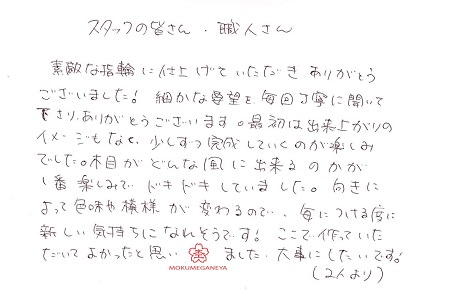 スタッフの皆さん・職人さん
素敵な指輪に仕上げていただきありがとう
ございました! 細かな要望を毎回丁寧に聞いて
下さり、ありがとうございます。最初は出来上がりの
イメージもなく、少しずつ完成していくのが楽しみ
でした。木目がどんな風に出来るのかが
1番楽しみで、ドキドキしていました。向きに
よって色味や模様が変わるので、毎につける度に
新しい気持ちになれそうです! ここで作っていた
だいてよかったと思いました。大事にしたいです!
(2人より)
MOKUMEGANEYA